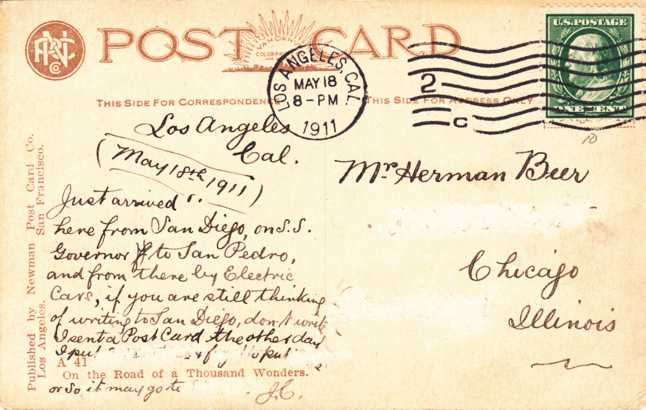 POST CARD
THIS SIDE FOR CORRESPONDENCE
THIS SIDE FOR ADDRESS ONLY
LOS ANGELES, CAL.
MAY 18
8-PM
1911
2
C
U.S. POSTAGE
ONE CENT
10
Los Angeles
Cal.
(May 18th, 1911)
Just arrived
here from San Diego, on S.S.
Governor to San Pedro,
and from there by Electric
Cars, if you are still thinking
of writing to San Diego, don't write
I sent a Post Card the other day
I put
or so it may go to
J.C.
Mr Herman Beer
Chicago
Illinois
A 41
On the Road of a Thousand Wonders.
Published by Newman Post Card Co.
Los Angeles. San Francisco.